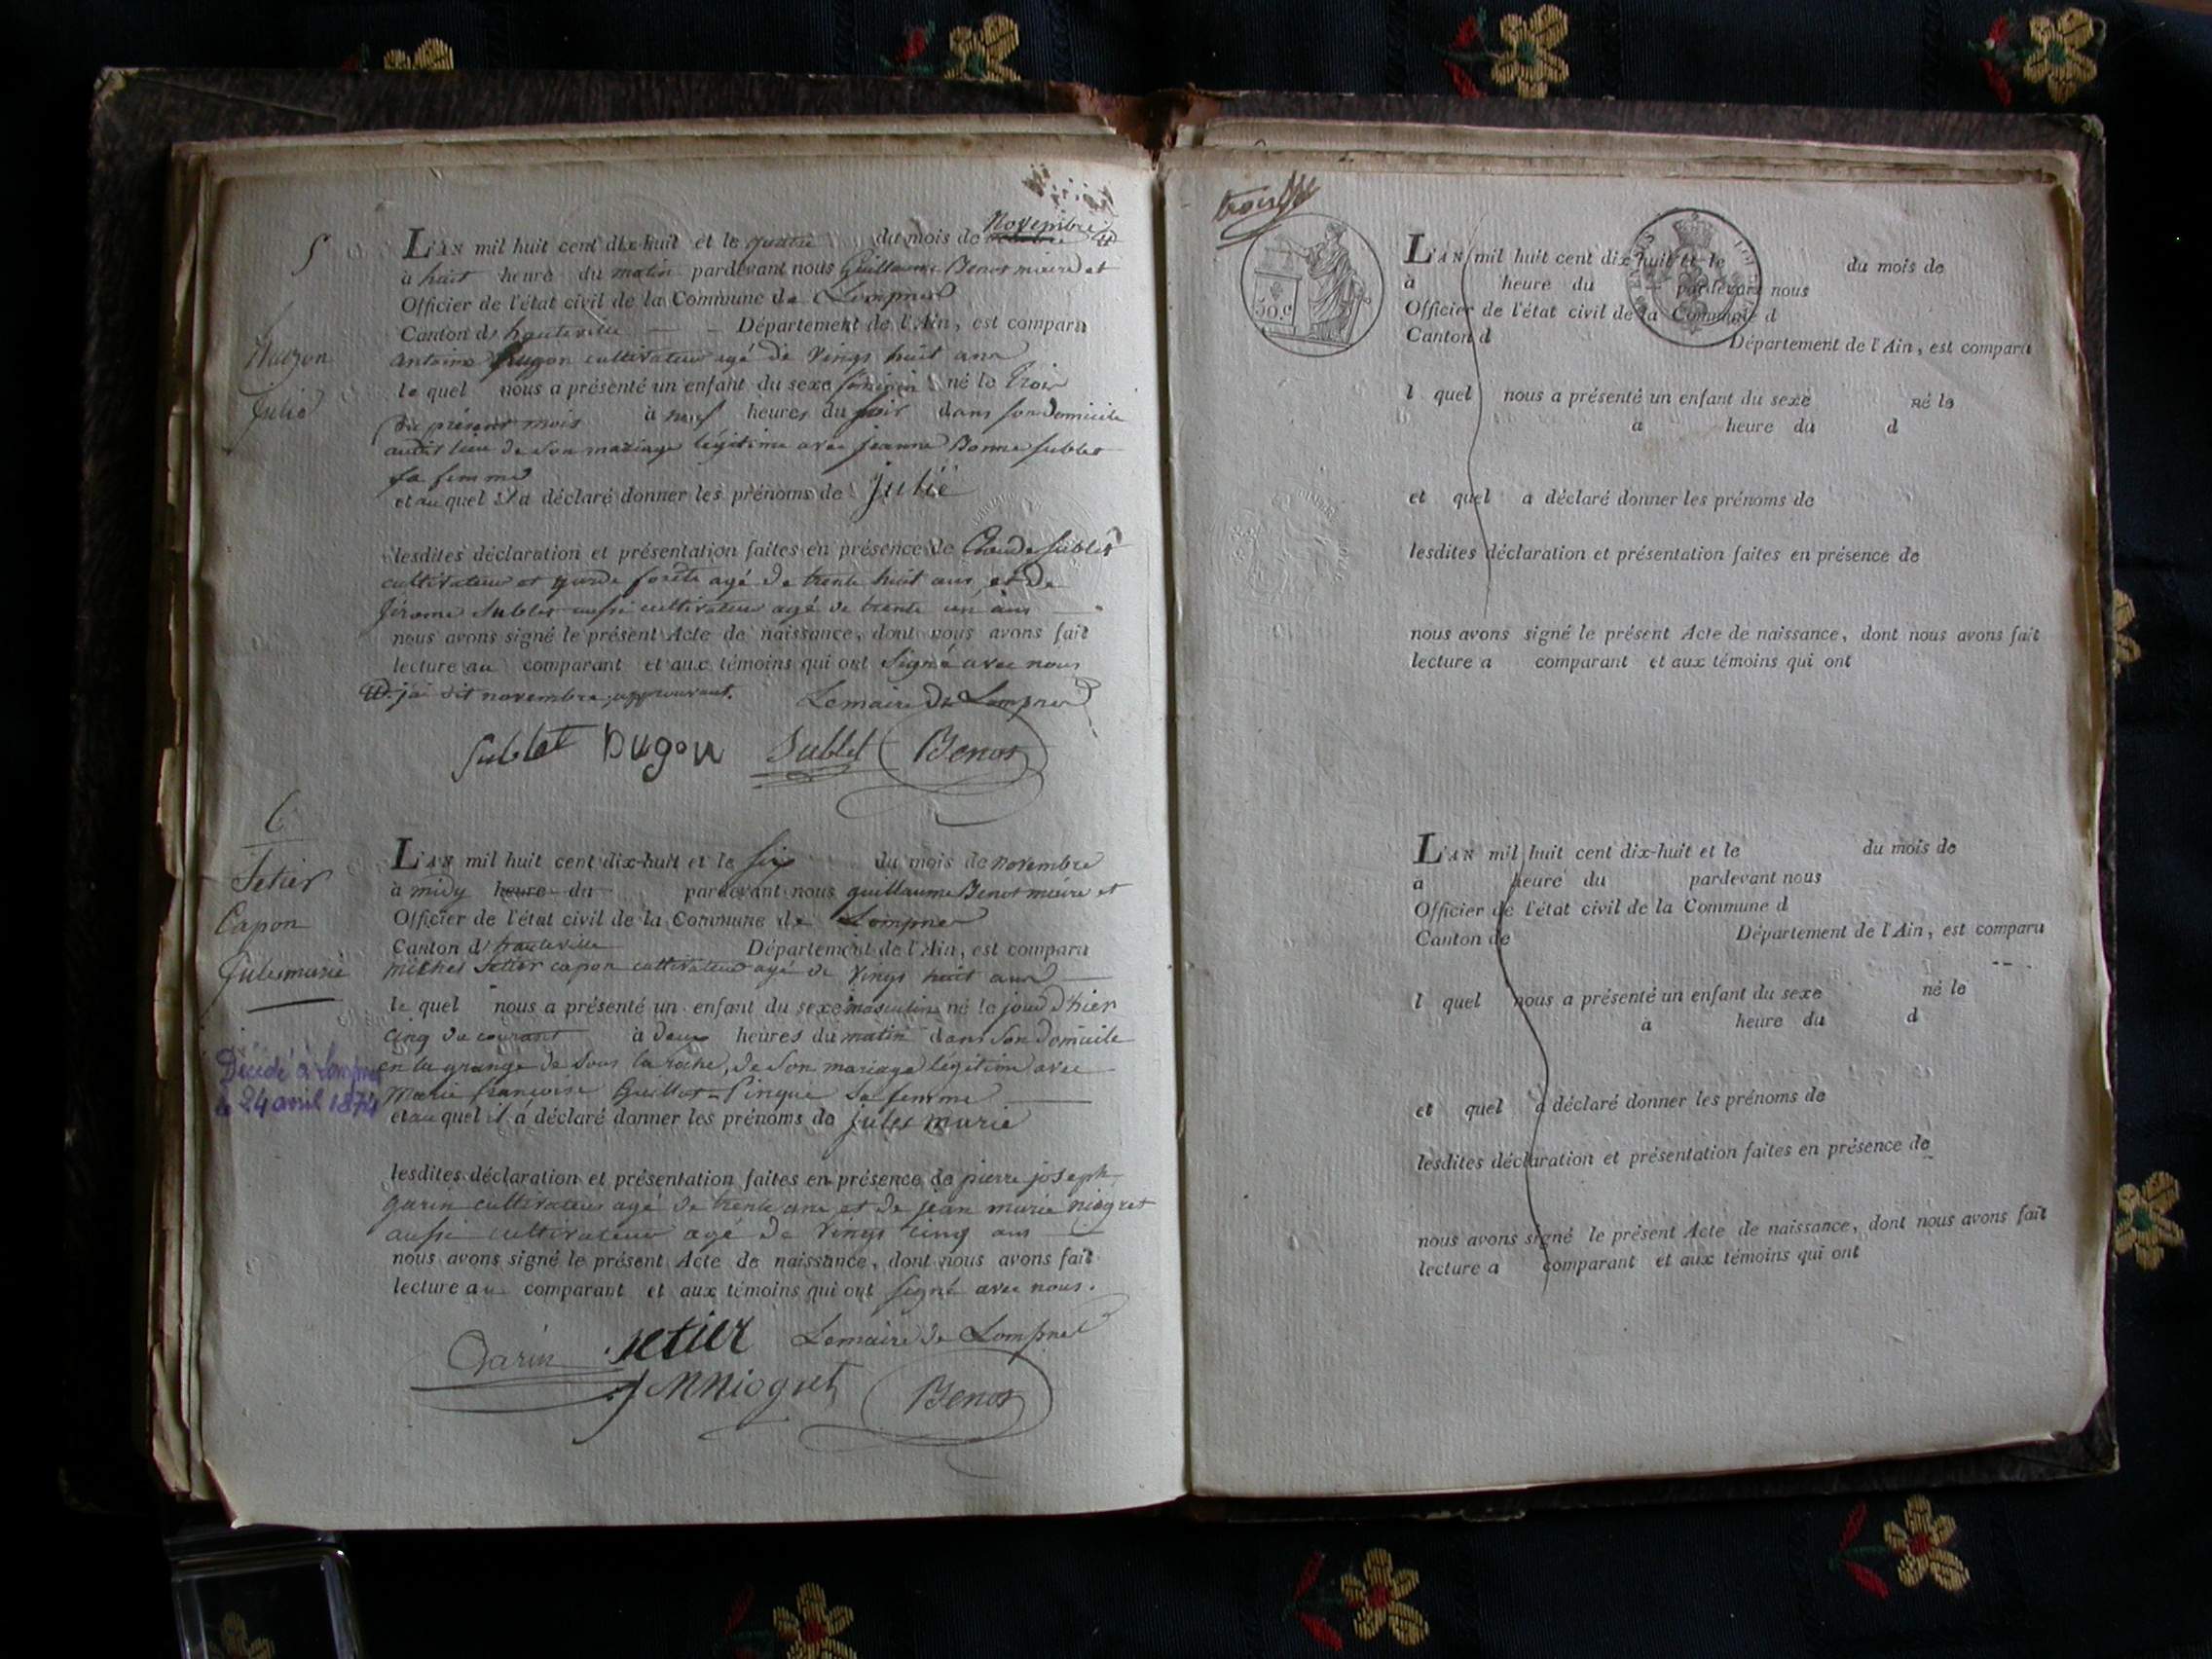 5
L'an mil huit cent dix-huit et le quatre du mois de Novembre
à huit heure du matin pardevant nous Guillaume Benot maire et
Officier de l'état civil de la Commune de Lompnes
Canton d'hauteville Département de l'Ain, est comparu
Antoine Dugon cultivateur agé de vings huit ans
le quel nous a présenté un enfant du sexe feminin né le trois
du présent mois à neuf heures du soir dans son domicile
audit lieu de son mariage légitime avec jeanne Bonne Sublet
sa femme
et au quel il a déclaré donner les prénoms de Julie
lesdites déclaration et présentation faites en présence de Claude Sublet
cultivateur et garde forêts agé de trente huit ans, et de
Jérome Sublet aussi cultivateur agé de trente un ans
nous avons signé le présent Acte de naissance, dont nous avons fait
lecture au comparant et aux témoins qui ont signé avec nous
j'ai dit novembre, approuvant.
Lemaire de Lompnes
Sublet Dugon Sublet Benot
Julie
6
Setier
Capon
Jules marie
Décédé à Lompnes
le 24 avril 1874
L'an mil huit cent dix-huit et le six du mois de novembre
à midy heure du pardevant nous guillaume Benot maire et
Officier de l'état civil de la Commune de Lompnes
Canton d'hauteville Département de l'Ain, est comparu
michel Setier capon cultivateur agé de vings huit ans
le quel nous a présenté un enfant du sexe masculin né le jour d'hier
cinq du courant à deux heures du matin dans son domicile
en la grange de sous la roche, de son mariage légitime avec
Marie françoise Guillot-Pingue sa femme
et au quel il a déclaré donner les prénoms de jules marie
lesdites déclaration et présentation faites en présence de pierre joseph
garin cultivateur agé de trente ans et de jean marie niogret
aussi cultivateur agé de vings cinq ans
nous avons signé le présent Acte de naissance, dont nous avons fait
lecture au comparant et aux témoins qui ont signé avec nous.
Garin Setier Lemaire de Lompnes
JMNiogret Benot
50 c
L'an mil huit cent dix-huit et le du mois de
à heure du pardevant nous
Officier de l'état civil de la Commune d
Canton d Département de l'Ain, est comparu
l quel nous a présenté un enfant du sexe né le
à heure du d
et quel a déclaré donner les prénoms de
lesdites déclaration et présentation faites en présence de
nous avons signé le présent Acte de naissance, dont nous avons fait
lecture a comparant et aux témoins qui ont
L'an mil huit cent dix-huit et le du mois de
à heure du pardevant nous
Officier de l'état civil de la Commune d
Canton de Département de l'Ain, est comparu
l quel nous a présenté un enfant du sexe né le
à heure du d
et quel a déclaré donner les prénoms de
lesdites déclaration et présentation faites en présence de
nous avons signé le présent Acte de naissance, dont nous avons fait
lecture a comparant et aux témoins qui ont